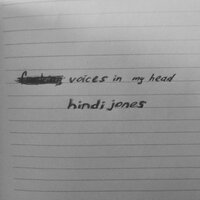 voices in my head
hindi jones